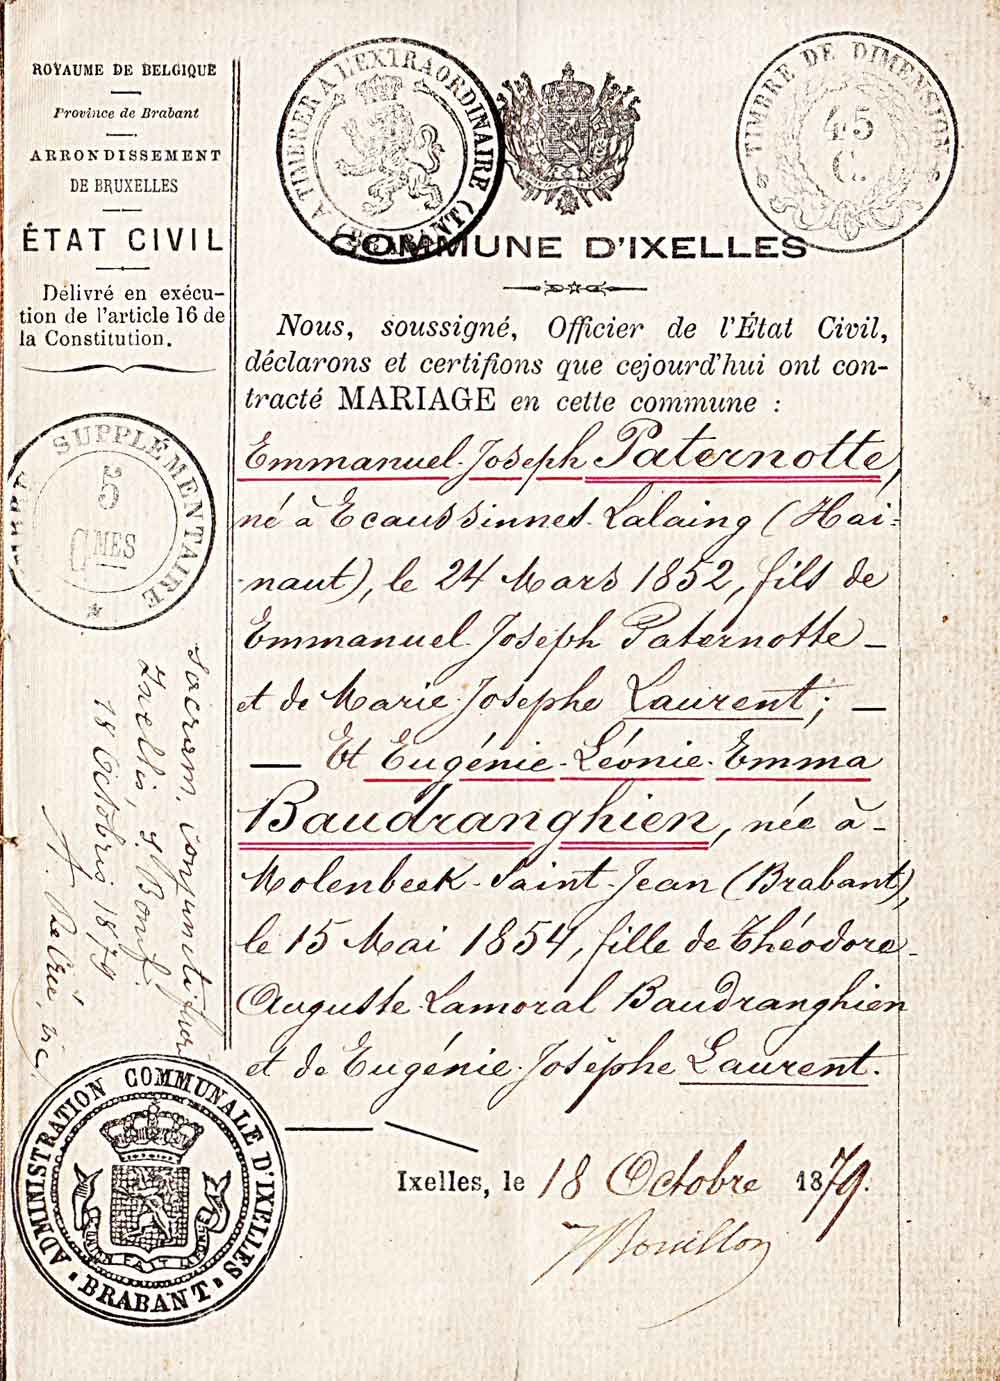 ROYAUME DE BELGIQUE
Province de Brabant
ARRONDISSEMENT
DE BRUXELLES
ÉTAT CIVIL
Délivré en exécu-
tion de l'article 16 de
la Constitution.
A TIMBRER A L'EXTRAORDINAIRE (BRABANT)
TIMBRE DE DIMENSION
45
C.
COMMUNE D'IXELLES
Nous, soussigné, Officier de l'État Civil,
déclarons et certifions que cejourd'hui ont con-
tracté MARIAGE en cette commune :
Emmanuel-Joseph Paternotte,
né à Ecaussinnes-Lalaing (Hai-
naut), le 24 Mars 1852, fils de
Emmanuel Joseph Paternotte –
et de Marie-Josephe Laurent; –
— Et Eugénie-Léonie-Emma
Baudranghien, née à -
Molenbeek-Saint-Jean (Brabant),
le 15 Mai 1854, fille de Théodore-
Auguste-Lamoral Baudranghien
et de Eugénie-Josèphe Laurent.
Ixelles, le 18 Octobre 1879.
TIMBRE SUPPLÉMENTAIRE
5
CMES
Sacram. conjuncti
Ixellis, S. Bonif.
18 Octobris 1879
ADMINISTRATION COMMUNALE D'IXELLES
BRABANT